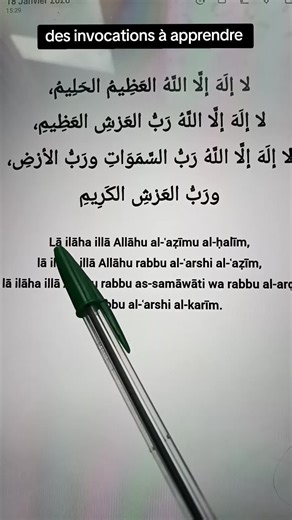 18 Janvier 2026
15:25
des invocations à apprendre
لا إلَهَ إلَّا اللَّهُ العَظِيمُ الحَلِيمُ،
لا إلَهَ إلَّا اللَّهُ رَبُّ العَرْشِ العَظِيمِ،
لا إلَهَ إلَّا اللَّهُ رَبُّ السَّمَوَاتِ ورَبُّ الأرْضِ،
ورَبُّ العَرْشِ الكَرِيمِ
Lā ilāha illā Allāhu al-ʿaẓīmu al-ḥalīm,
lā illā Allāhu rabbu al-ʿarshi al-ʿaẓīm,
lā ilāha illā rabbu as-samāwāti wa rabbu al-arḍ
al-ʿarshi al-karīm.